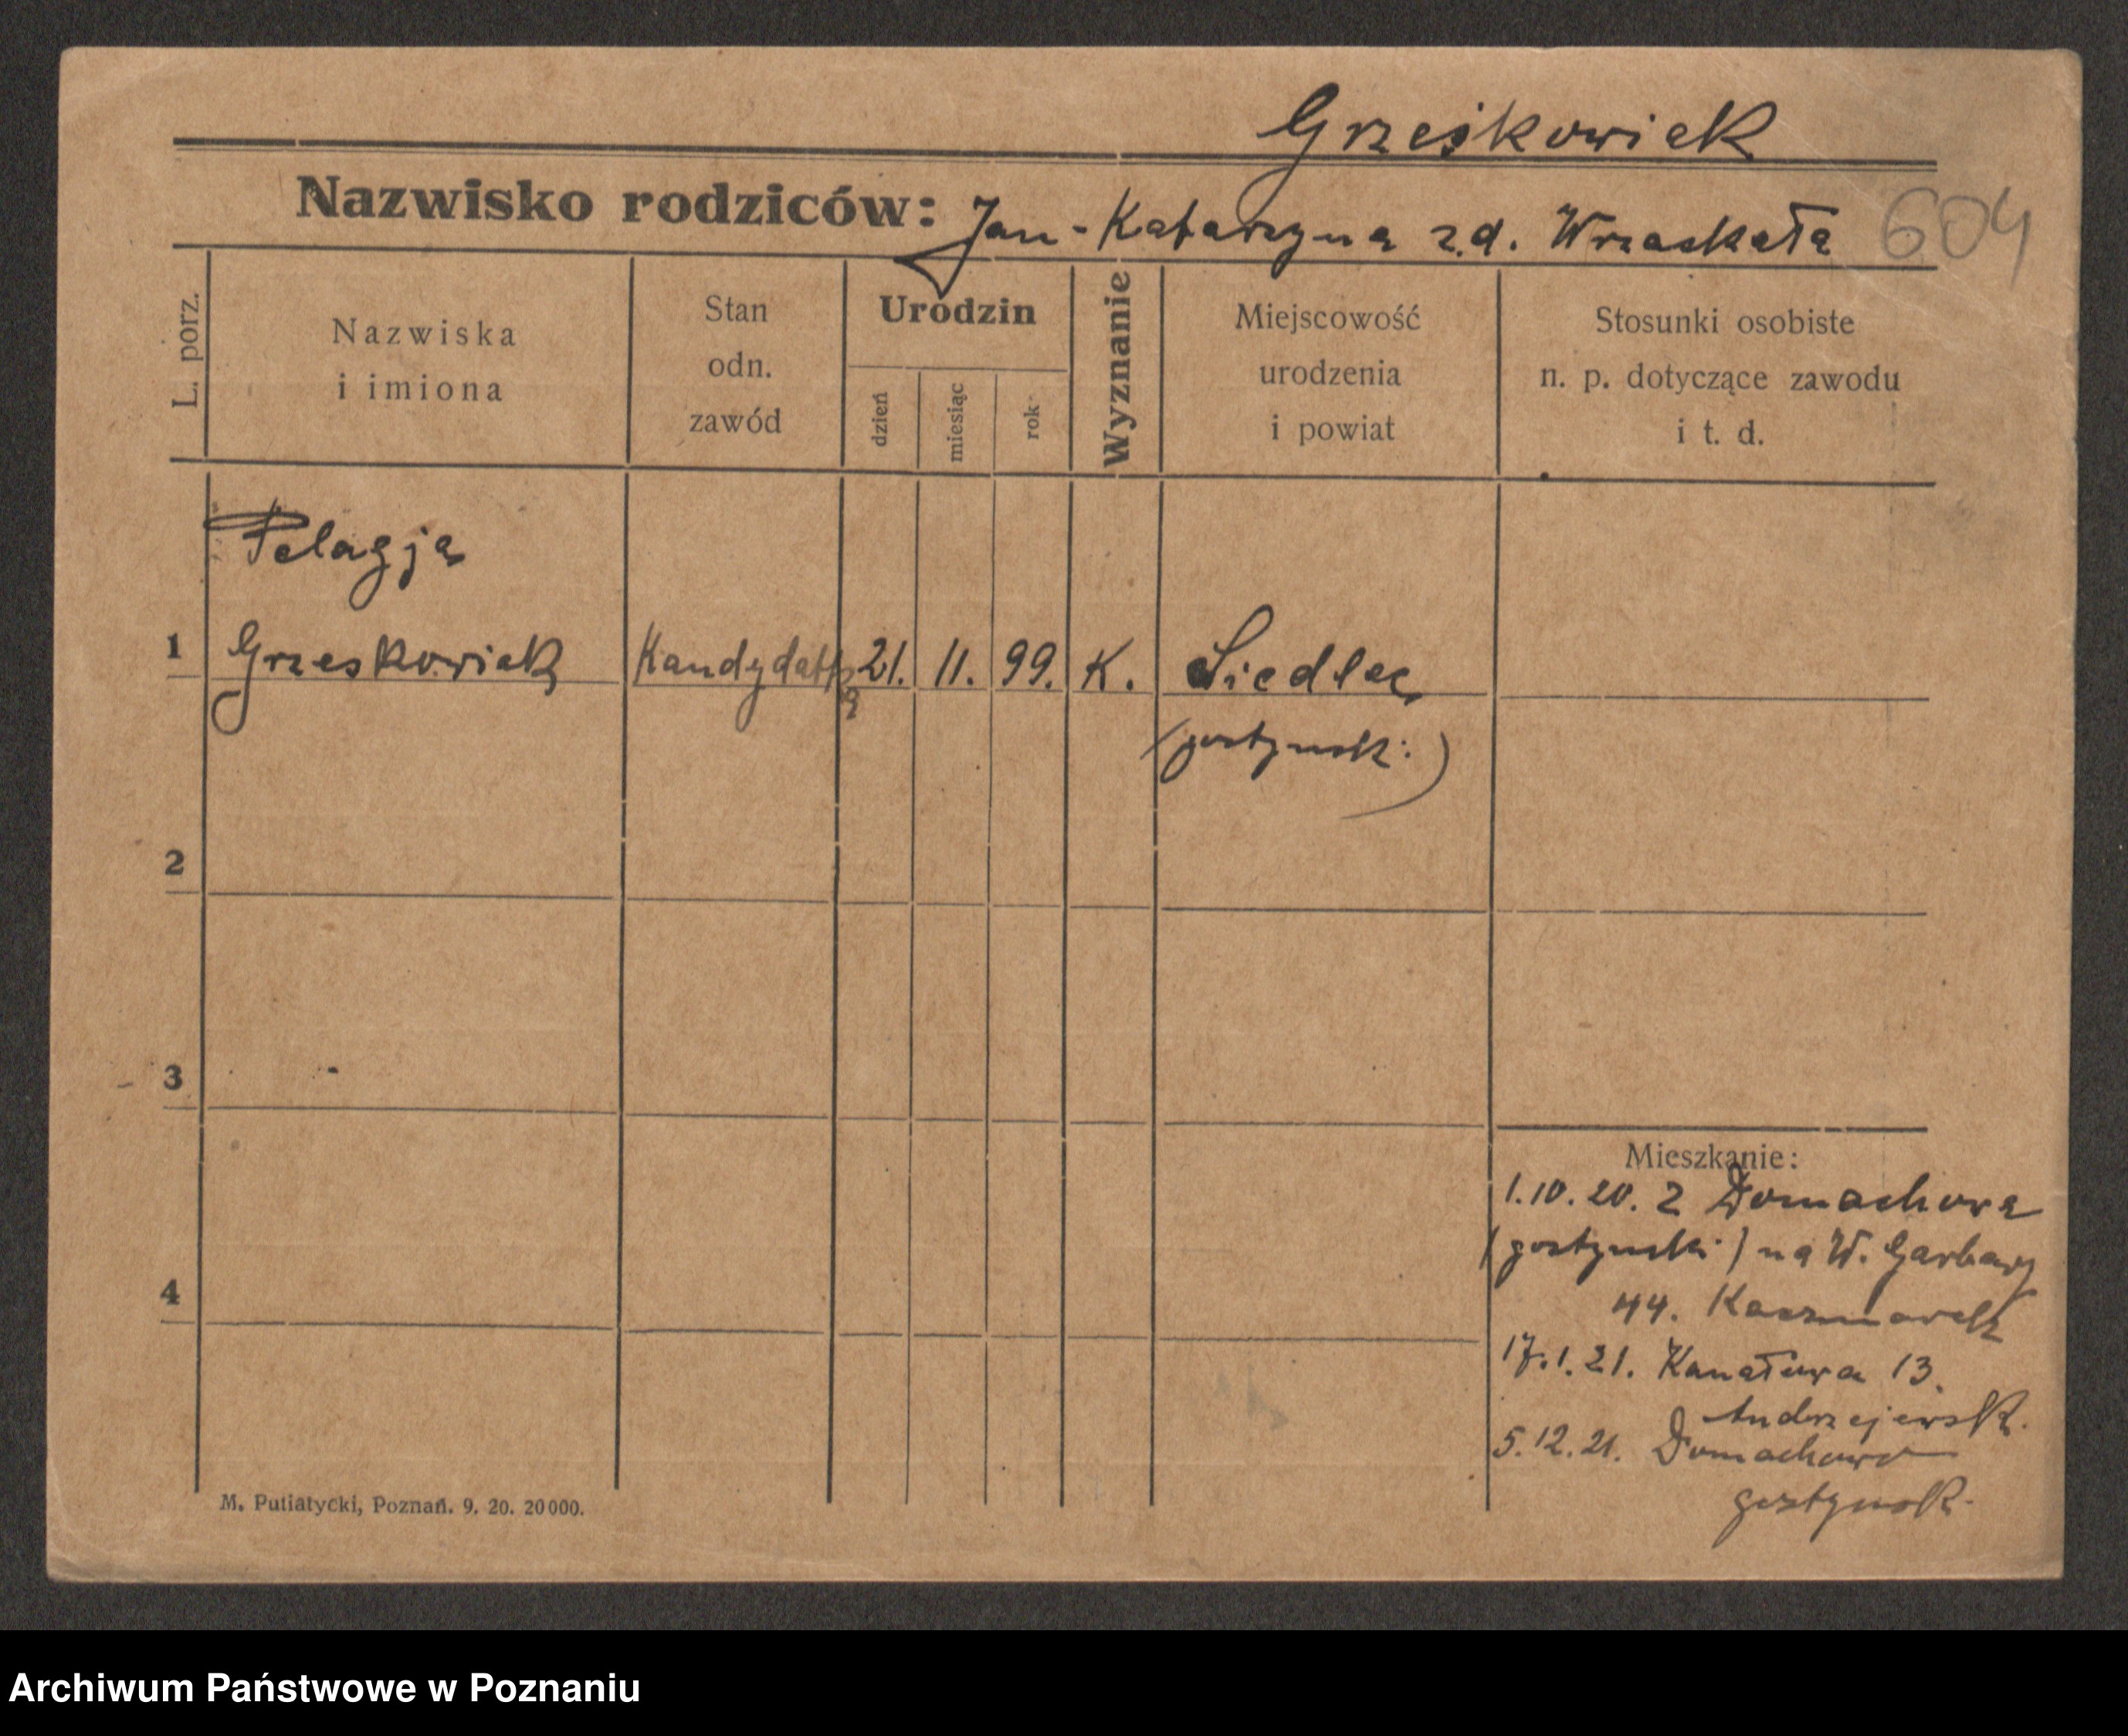 Grześkowiak
Nazwisko rodziców: Jan - Katarzyna z.d. Wrzaskała 604
L. porz.
Nazwiska
i imiona
Stan
odn.
zawód
Urodzin
dzień
miesiąc
rok
Wyznanie
Miejscowość
urodzenia
i powiat
Stosunki osobiste
n. p. dotyczące zawodu
i t. d.
Pelagja
1 Grzeskowiak Kandydatka 21. 11. 99. K. Siedlec
(gostyński)
2
3
4
Mieszkanie:
1.10.20. z Domachowa
(gostyński) na W. Garbary
44. Kaczmarek
17.1.21. Kanałowa 13.
Andrzejewsk.
5.12.21. Domachowo
gostyńsk.
M. Putiatycki, Poznań. 9. 20. 20000.
Archiwum Państwowe w Poznaniu